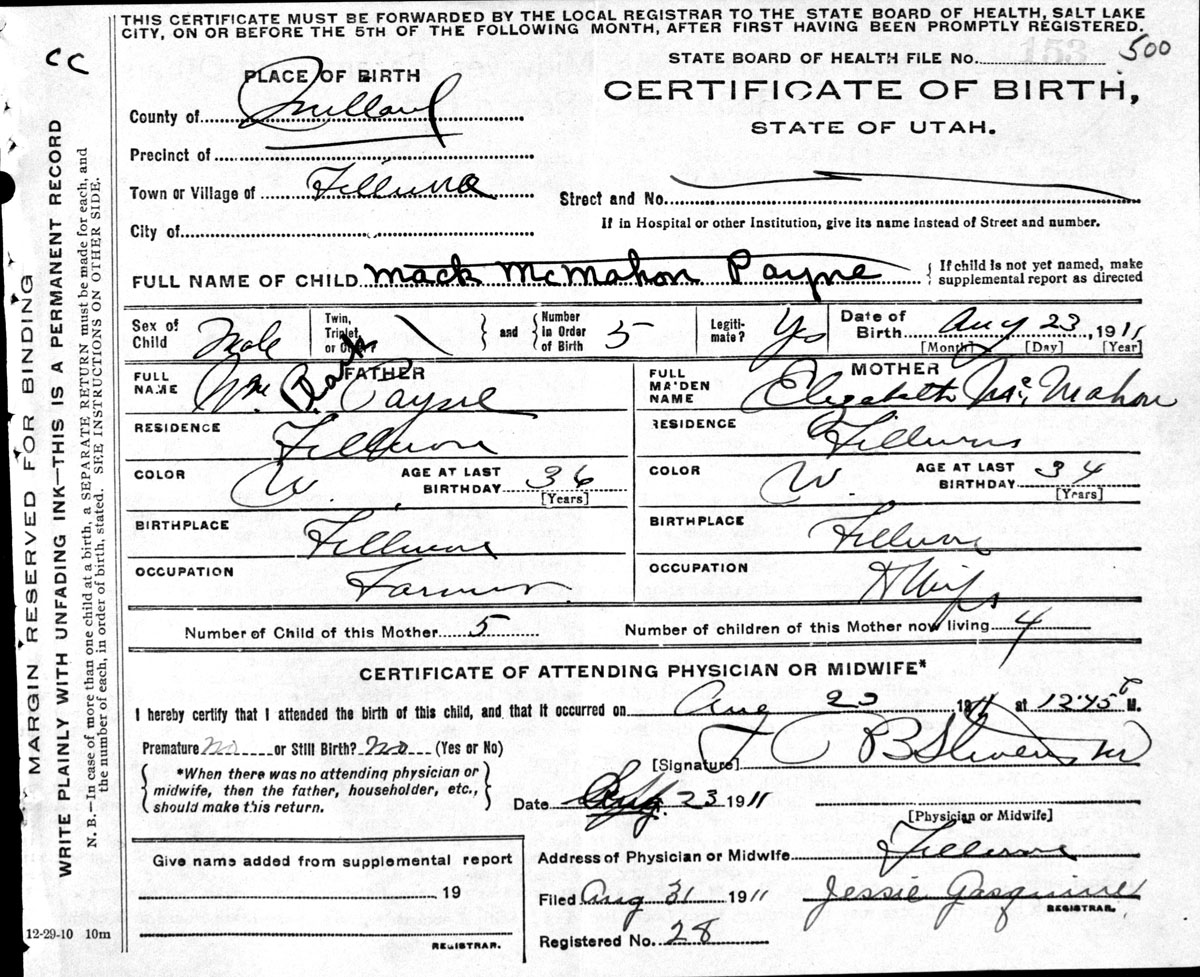 THIS CERTIFICATE MUST BE FORWARDED BY THE LOCAL REGISTRAR TO THE STATE BOARD OF HEALTH, SALT LAKE
CITY, ON OR BEFORE THE 5TH OF THE FOLLOWING MONTH, AFTER FIRST HAVING BEEN PROMPTLY REGISTERED.
CC
PLACE OF BIRTH
STATE BOARD OF HEALTH FILE No. 500
County of Millard
CERTIFICATE OF BIRTH,
STATE OF UTAH.
Precinct of
Town or Village of Fillmore
Street and No.
City of
If in Hospital or other Institution, give its name Instead of Street and number.
FULL NAME OF CHILD Mack McMahon Payne
{ If child is not yet named, make
supplemental report as directed
Sex of Child Male
Twin, Triplet, or Other?
and
Number in Order of Birth 5
Legiti-mate? Yes
Date of Birth Aug 23, 1911
[Month] [Day] [Year]
FATHER
FULL NAME Wm. Payne
RESIDENCE Fillmore
COLOR W. AGE AT LAST BIRTHDAY 36
[Years]
BIRTHPLACE Fillmore
OCCUPATION Farmer
MOTHER
FULL MAIDEN NAME Elizabeth McMahon
RESIDENCE Fillmore
COLOR W. AGE AT LAST BIRTHDAY 34
[Years]
BIRTHPLACE Fillmore
OCCUPATION H Wife
Number of Child of this Mother 5
Number of children of this Mother now living 4
CERTIFICATE OF ATTENDING PHYSICIAN OR MIDWIFE*
I hereby certify that I attended the birth of this child, and that it occurred on Aug 23 1911 at 12:45 M.
Premature No or Still Birth? No (Yes or No)
[Signature]
*When there was no attending physician or
midwife, then the father, householder, etc.,
should make this return.
Date Aug. 23 1911
[Physician or Midwife]
Give name added from supplemental report
19
REGISTRAR.
Address of Physician or Midwife Fillmore
Filed Aug 31 1911 Jessie
REGISTRAR.
Registered No. 28
12-29-10 10m
MARGIN RESERVED FOR BINDING
WRITE PLAINLY WITH UNFADING INK—THIS IS A PERMANENT RECORD
N. B.—In case of more than one child at a birth, a SEPARATE RETURN must be made for each, and
the number of each, in order of birth, stated. SEE INSTRUCTIONS ON OTHER SIDE.